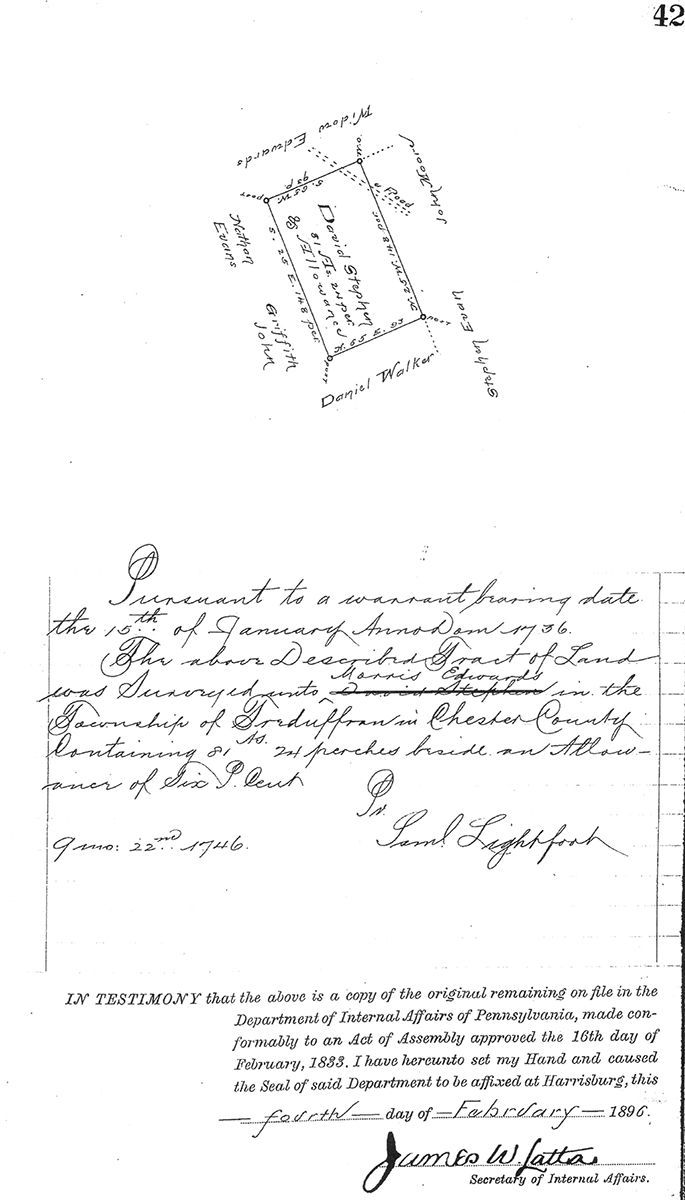 42
Widow Edwards
John Moore
Nathan
Evans
Griffith
John
Daniel Walker
Stephen Evan
David Stephen
81 As. 24 per
& Allowance
S. 65 W.
93 p.
S. 25 E. 148 per
N. 65 E. 93
N. 25 W. 148 per
Road
post
post
post
Pursuant to a warrant bearing date
the 15th of January Anno Dom 1736.
The above Described Tract of Land
Morris Edwards
was Surveyed unto David Stephen in the
Township of Treduffran in Chester County
Containing 81 As. 24 perches beside an Allow-
ance of Six P. Cent
Pr.
9 mo: 22nd 1746. Saml. Lightfoot
IN TESTIMONY that the above is a copy of the original remaining on file in the
Department of Internal Affairs of Pennsylvania, made con-
formably to an Act of Assembly approved the 16th day of
February, 1833. I have hereunto set my Hand and caused
the Seal of said Department to be affixed at Harrisburg, this
fourth day of February 1896.
James W. Latta
Secretary of Internal Affairs.